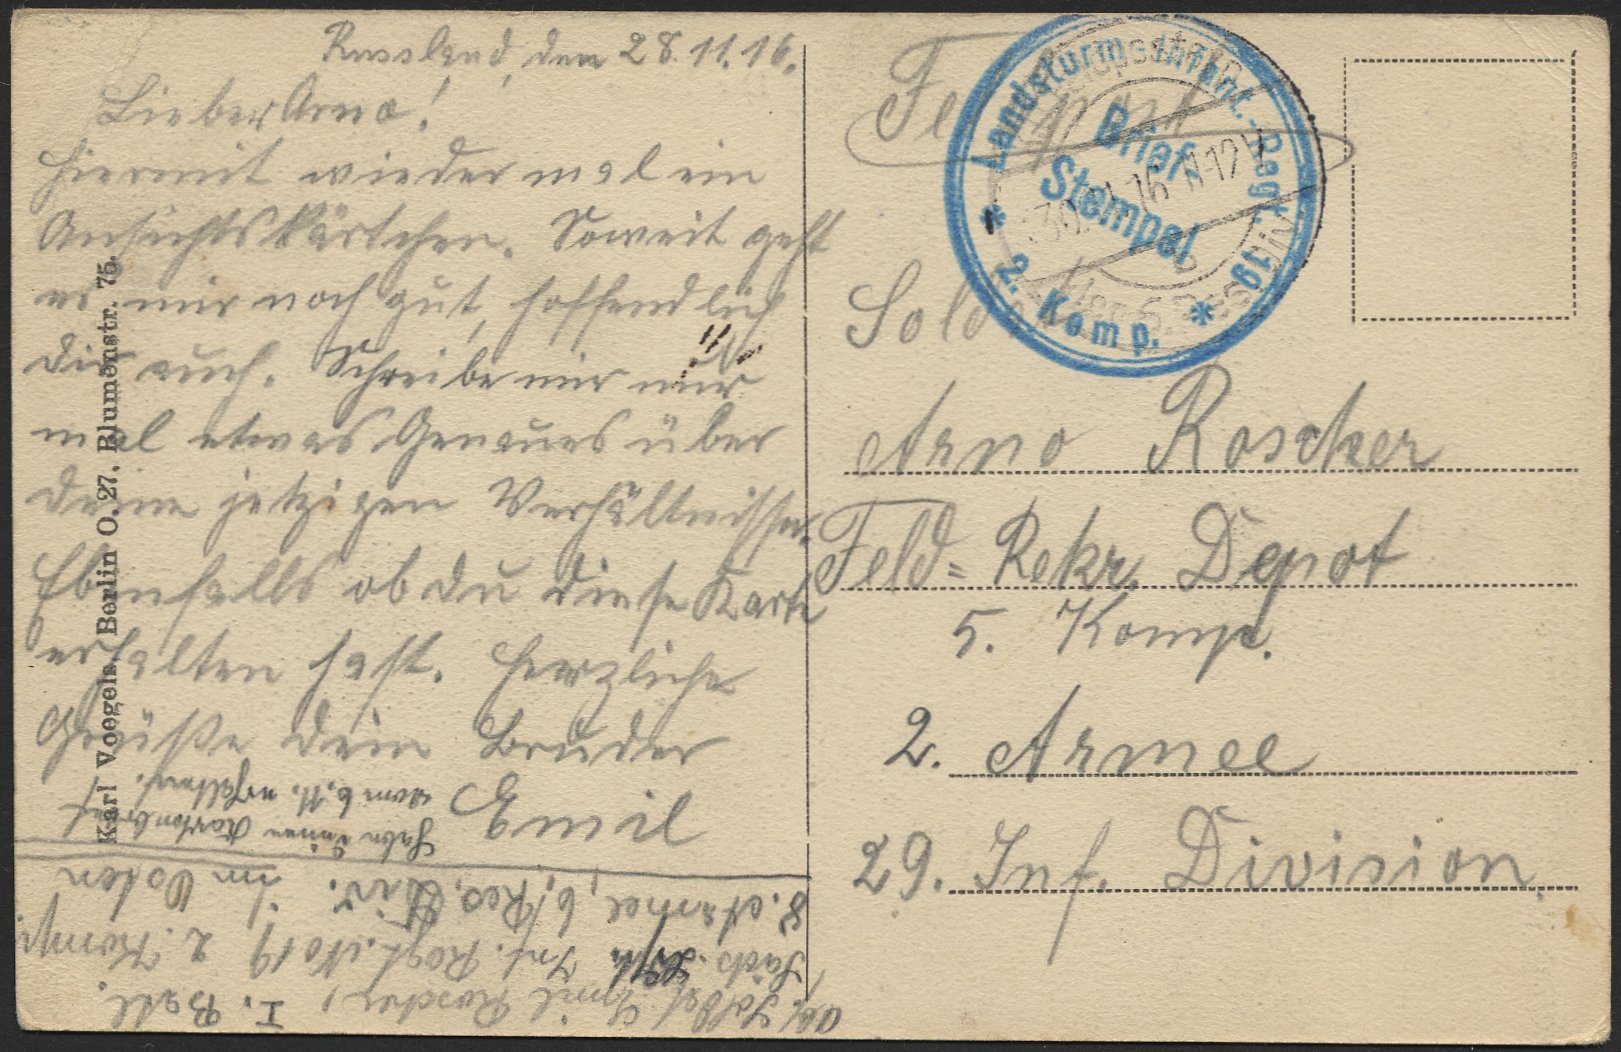 Russland, den 28.11.16.
Lieber Arno!
Hiermit wieder mal ein
Ansichtskärtchen. Soweit geht
es mir noch gut, hoffendlich
dir auch. Schreibe mir nur
mal etwas Genaues über
deine jetzigen Verhältnisse.
Ebenfalls ob du diese Karte
erhalten hast. Herzliche
Grüße dein Bruder
Emil
Habe deinen Kartenbrief
vom 6.11. erhalten.
Abs. Soldat Emil Roscher, I. Batl.
Sächs. Ldst. Inf. Regt. No 19 2. Komp.
8. Armee, 6. Res. Div. im Osten
Karl Voegels, Berlin O. 27, Blumenstr. 75.
Feldpost
Landsturm-Infant.-Regt. 19
Brief-
Stempel
* 2. Komp. *
30.11.16
Arno Roscher
Feld= Rekr. Depot
5. Komp.
2. Armee
29. Inf. Division.